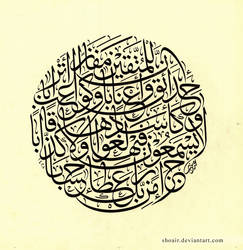 إن للمتقين مفازا
حدائق وأعنابا وكواعب أترابا
وكأسا دهاقا لا يسمعون فيها لغوا ولا كذابا
جزاء من ربك عطاء حسابا
shoair.deviantart.com